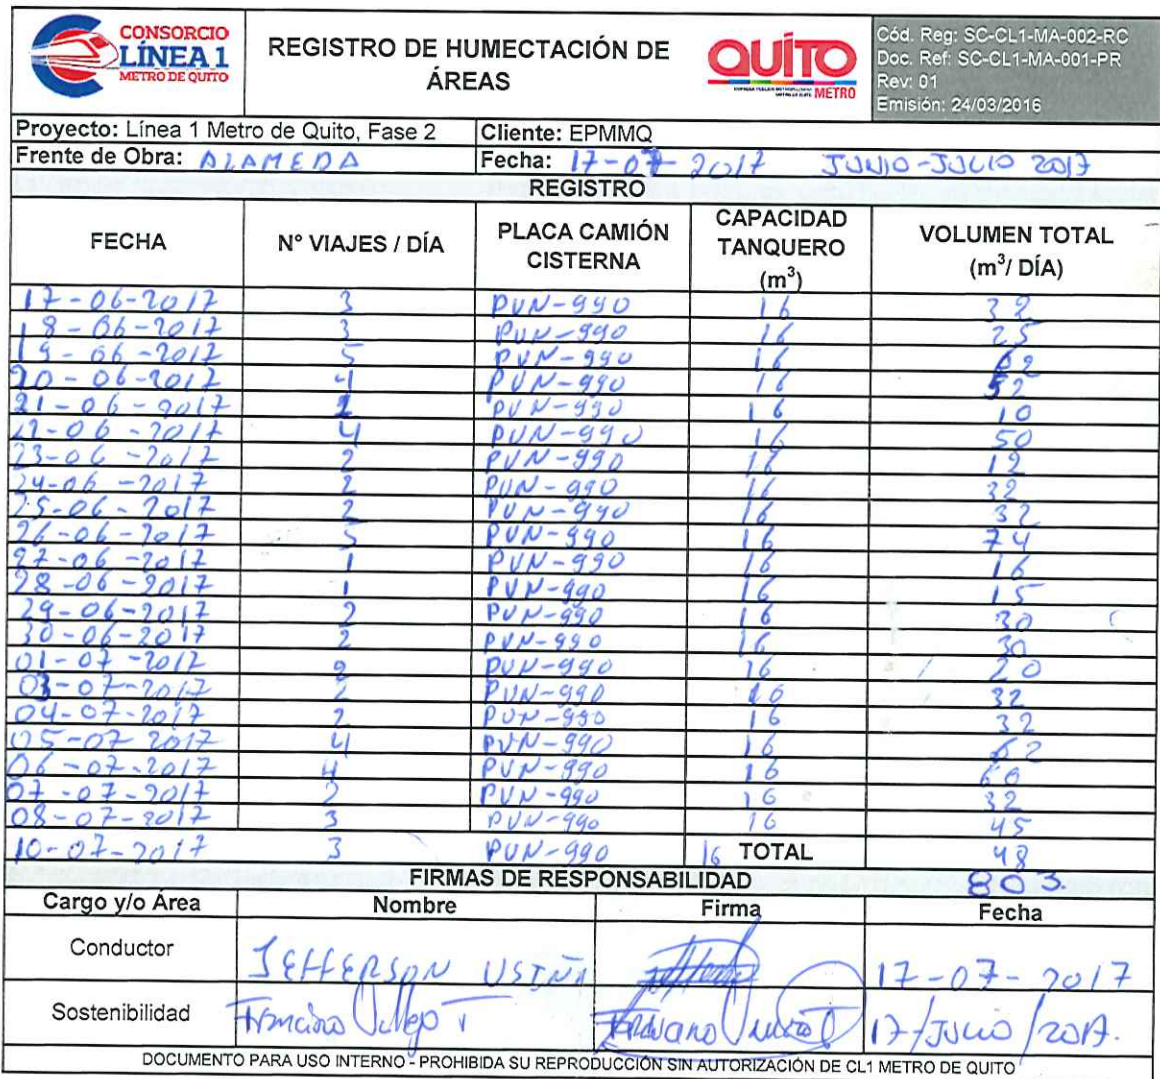 CONSORCIO
LÍNEA 1
METRO DE QUITO
REGISTRO DE HUMECTACIÓN DE
ÁREAS
QUITO
METRO
Cód. Reg: SC-CL1-MA-002-RC
Doc. Ref: SC-CL1-MA-001-PR
Rev: 01
Emisión: 24/03/2016
Proyecto: Línea 1 Metro de Quito, Fase 2 Cliente: EPMMQ
Frente de Obra: ALAMEDA Fecha: 17-07-2017 JUNIO-JULIO 2017
REGISTRO
FECHA Nº VIAJES / DÍA PLACA CAMIÓN CISTERNA CAPACIDAD TANQUERO (m³) VOLUMEN TOTAL (m³/ DÍA)
17-06-2017 3 PUN-990 16 32
18-06-2017 3 PUN-990 16 25
19-06-2017 5 PUN-990 16 62
20-06-2017 4 PUN-990 16 52
21-06-2017 PUN-990 16 10
22-06-2017 4 PUN-990 16 50
23-06-2017 2 PUN-990 16 12
24-06-2017 2 PUN-990 16 32
25-06-2017 2 PUN-990 16 32
26-06-2017 5 PUN-990 16 74
27-06-2017 1 PUN-990 16 16
28-06-2017 1 PUN-990 16 15
29-06-2017 2 PUN-990 16 30
30-06-2017 2 PUN-990 16 30
01-07-2017 2 PUN-990 16 20
03-07-2017 2 PUN-990 16 32
04-07-2017 2 PUN-990 16 32
05-07-2017 4 PUN-990 16 62
06-07-2017 4 PUN-990 16 60
07-07-2017 2 PUN-990 16 32
08-07-2017 3 PUN-990 16 45
10-07-2017 3 PUN-990 16 TOTAL 48
FIRMAS DE RESPONSABILIDAD 803
Cargo y/o Área Nombre Firma Fecha
Conductor JEFFERSON USIÑA 17-07-2017
Sostenibilidad 17/JULIO/2017.
DOCUMENTO PARA USO INTERNO - PROHIBIDA SU REPRODUCCIÓN SIN AUTORIZACIÓN DE CL1 METRO DE QUITO